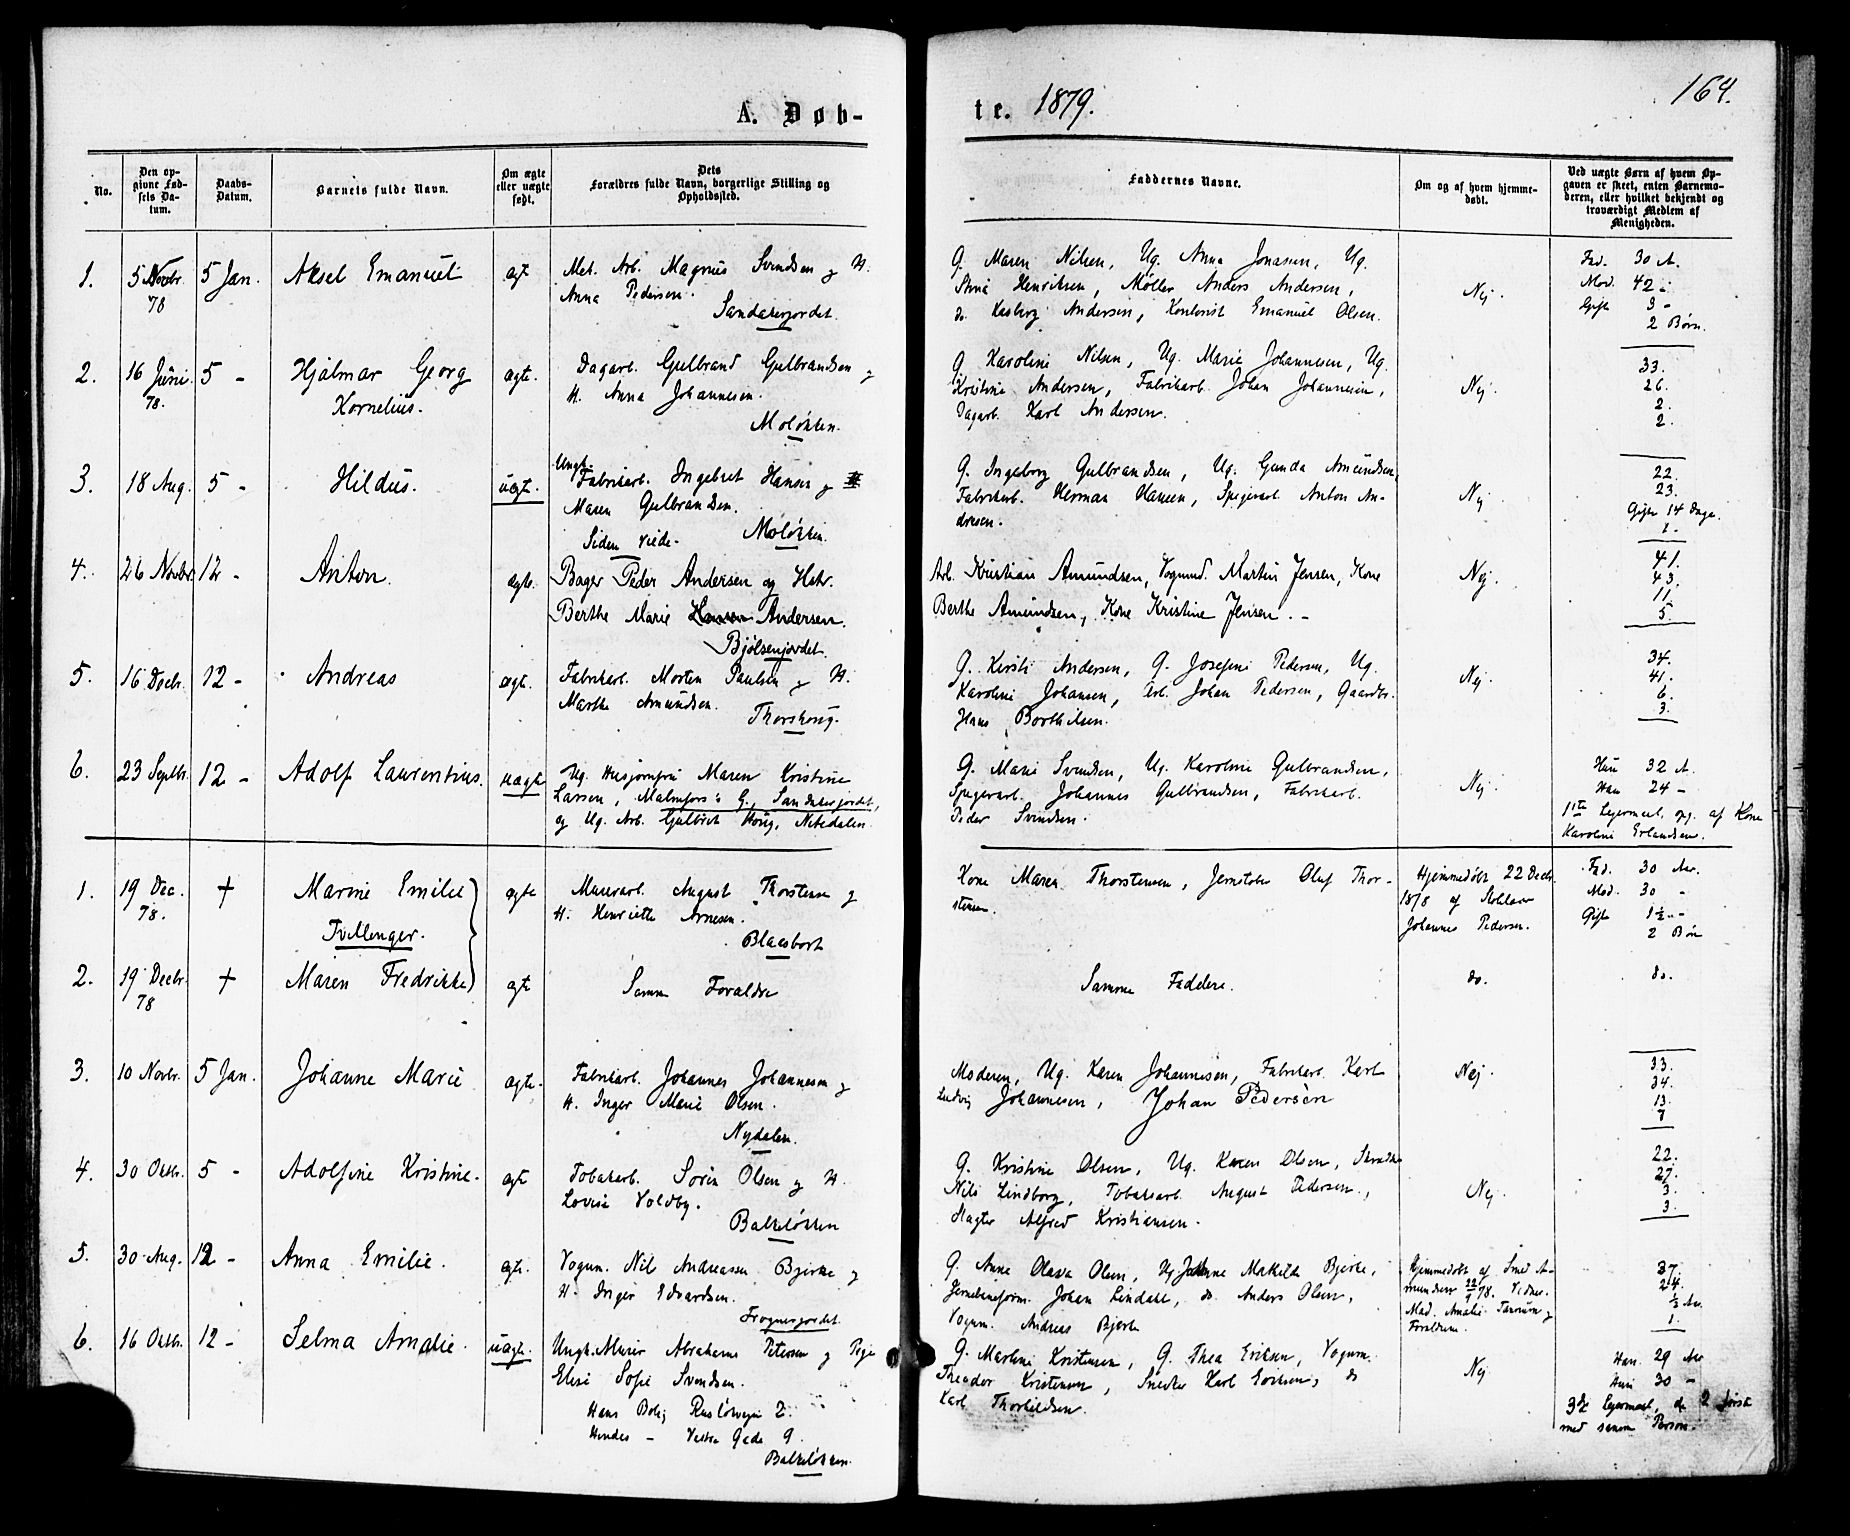 A. Døb-
te. 1879.
164.
No.
Den op-
givne Fød-
sels Da-
tum.
Daabs-
Datum.
Barnets fulde Navn.
Om ægte
eller uægte
født.
Dets
Forældres fulde Navn, borgerlige Stilling og
Opholdssted.
Faddernes Navne.
Om og af hvem hjemme-
døbt.
Ved uægte Børn af hvem Op-
gaven er skeet, enten Barnemo-
deren, eller hvilket bekjendt og
troværdigt Medlem af
Menigheden.
1.
5 Novbr.
78
5 Jan.
Aksel Emanuel
ægt
Mek. Arb. Magnus Svendsen og H.
Anna Pedersen.
Sandakerjordet.
G. Maren Nilsen, Ug. Anna Jonasen, Ug.
Stina Henriksen, Møller Anders Andersen,
do Andersen, Kontorist Emanuel Olsen.
Nej.
Fad. 30 A.
Mod. 42 -
Gift 3 -
2 Børn.
2.
16 Juni
78.
5 -
Hjalmar Georg
Kornelius.
ægte.
Dagarb. Gulbrand Gulbrandsen og
H. Anna Johannesen.
Moløkken.
G. Karoline Nilsen, Ug. Marie Johannesen, Ug.
Kristine Andersen, Fabrikarb. Johan Johannesen,
Dagarb. Karl Andersen.
Nej
33.
26.
2.
2.
3.
18 Aug.
5 -
Hildus.
uægt.
Ungk.
Fabrikarb. Ingebret Hansen og
Maren Gulbrandsen.
Siden viede. Moløkken.
G. Ingeborg Gulbrandsen, Ug. Gunda Amundsen,
Fabrikarb. Herman Hansen, Spigerarb. Anton An-
dresen.
Nej
22.
23.
Gifte 14 Dage.
1 -
4.
26 Novbr
12 -
Anton.
ægte.
Bager Peder Andersen og Hstr.
Berthe Marie Hansen Andersen.
Bjølsenjordet.
Arb. Kristian Amundsen, Vognmd. Martin Jensen, Kone
Berthe Amundsen, Kone Kristine Jensen. -
Nej.
41.
43.
11.
5.
5.
16 Decbr.
12 -
Andreas
ægt.
Fabrikarb. Morten Paulsen og H.
Marthe Amundsen.
Thorshoug.
G. Kirsti Andersen, G. Josefine Pedersen, Ug.
Karoline Johansen, Arb. Johan Pedersen, Gaardbr.
Hans Borthilsen.
Nej.
34.
41.
6.
3.
6.
23 Septbr.
12 -
Adolf Laurentius.
uægte
Ug. Husjomfru Maren Kristine
Larsen, Malmfors's G., Sandakerjordet,
og Ug. Arb. Gulbret Houg, Nitedalen.
G. Marie Svendsen, Ug. Karoline Gulbrandsen,
Spigerarb. Johannes Gulbrandsen, Fabrikarb.
Peder Svendsen.
Nej.
Hun 32 A.
Han 24 -
1ste Leiermaal, opg. af Kone
Karoline Erlandsen.
1.
19 Dec.
78.
†
Marine Emilie
Tvillinger.
ægte
Murerarb. August Thorstensen og
H. Henriette Arnesen.
Blaasbort
Kone Maren Thorstensen, Jernstøber Oluf Thor-
stensen.
Hjemmedøbt 22 Decbr.
1878 af
Johannes Pedersen.
Fad. 30 Aar.
Mod. 30 -
Gift 1½ -
2 Børn
2.
19 Decbr.
78
†
Maren Fredrikke
ægt
Samme Forældre
Samme Faddere.
do.
do.
3.
10 Novbr.
5 Jan.
Johanne Marie
ægte.
Fabrikarb. Johannes Johannesen og
H. Inger Marie Olsen.
Nydalen.
Moderen, Ug. Karen Johannesen, Fabrikarb. Karl
Ludvig Johannesen, Johan Pedersen
Nej.
33.
34.
13.
7
4.
30 Oktbr.
5 -
Adolfine Kristine.
ægt
Tobakarb. Sørin Olsen og H.
Lovise Voldby.
Balkeløkken
G. Kristine Olsen, Ug. Karen Olsen,
Nils Lindborg, Tobaksarb. August Pedersen,
Slagter Alfred Kristiansen.
Nej.
22.
27.
3.
3.
5.
30 Aug.
12 -
Anna Emilie.
ægte.
Vognm. Nils Andreassen Bjerke og
H. Inger Edvardsen.
Frognerjordet.
G. Anne Olava Olsen, Ug. Johanne Mathilde Bjerke,
Jernbaneform. Johan Lindahl, do. Anders Olsen,
Vognm. Andreas Bjerke
Hjemmedøbt af Smed A-
mundsen 22/9 78. Vidner.
Mad. Amalie Tanum og
Forældrene.
37.
24.
½ Aar.
1.
6.
16 Oktbr.
12 -
Selma Amalie.
uægte.
Ungk. Murer Abraham Petersen og Pige
Elise Sofie Svendsen.
Hans Bolig Rusløkveien 2.
Hendes - Vestre Gade 9.
Balkeløkken.
G. Martine Kristensen, G. Thea Eriksen, Vognm.
Theodor Kristensen, Snedker Karl Eriksen, do
Karl Thorkildsen.
Nej
Han 29 Aar
Hun 30 -
3die Leiermaal, de 2 første
med samme Person.